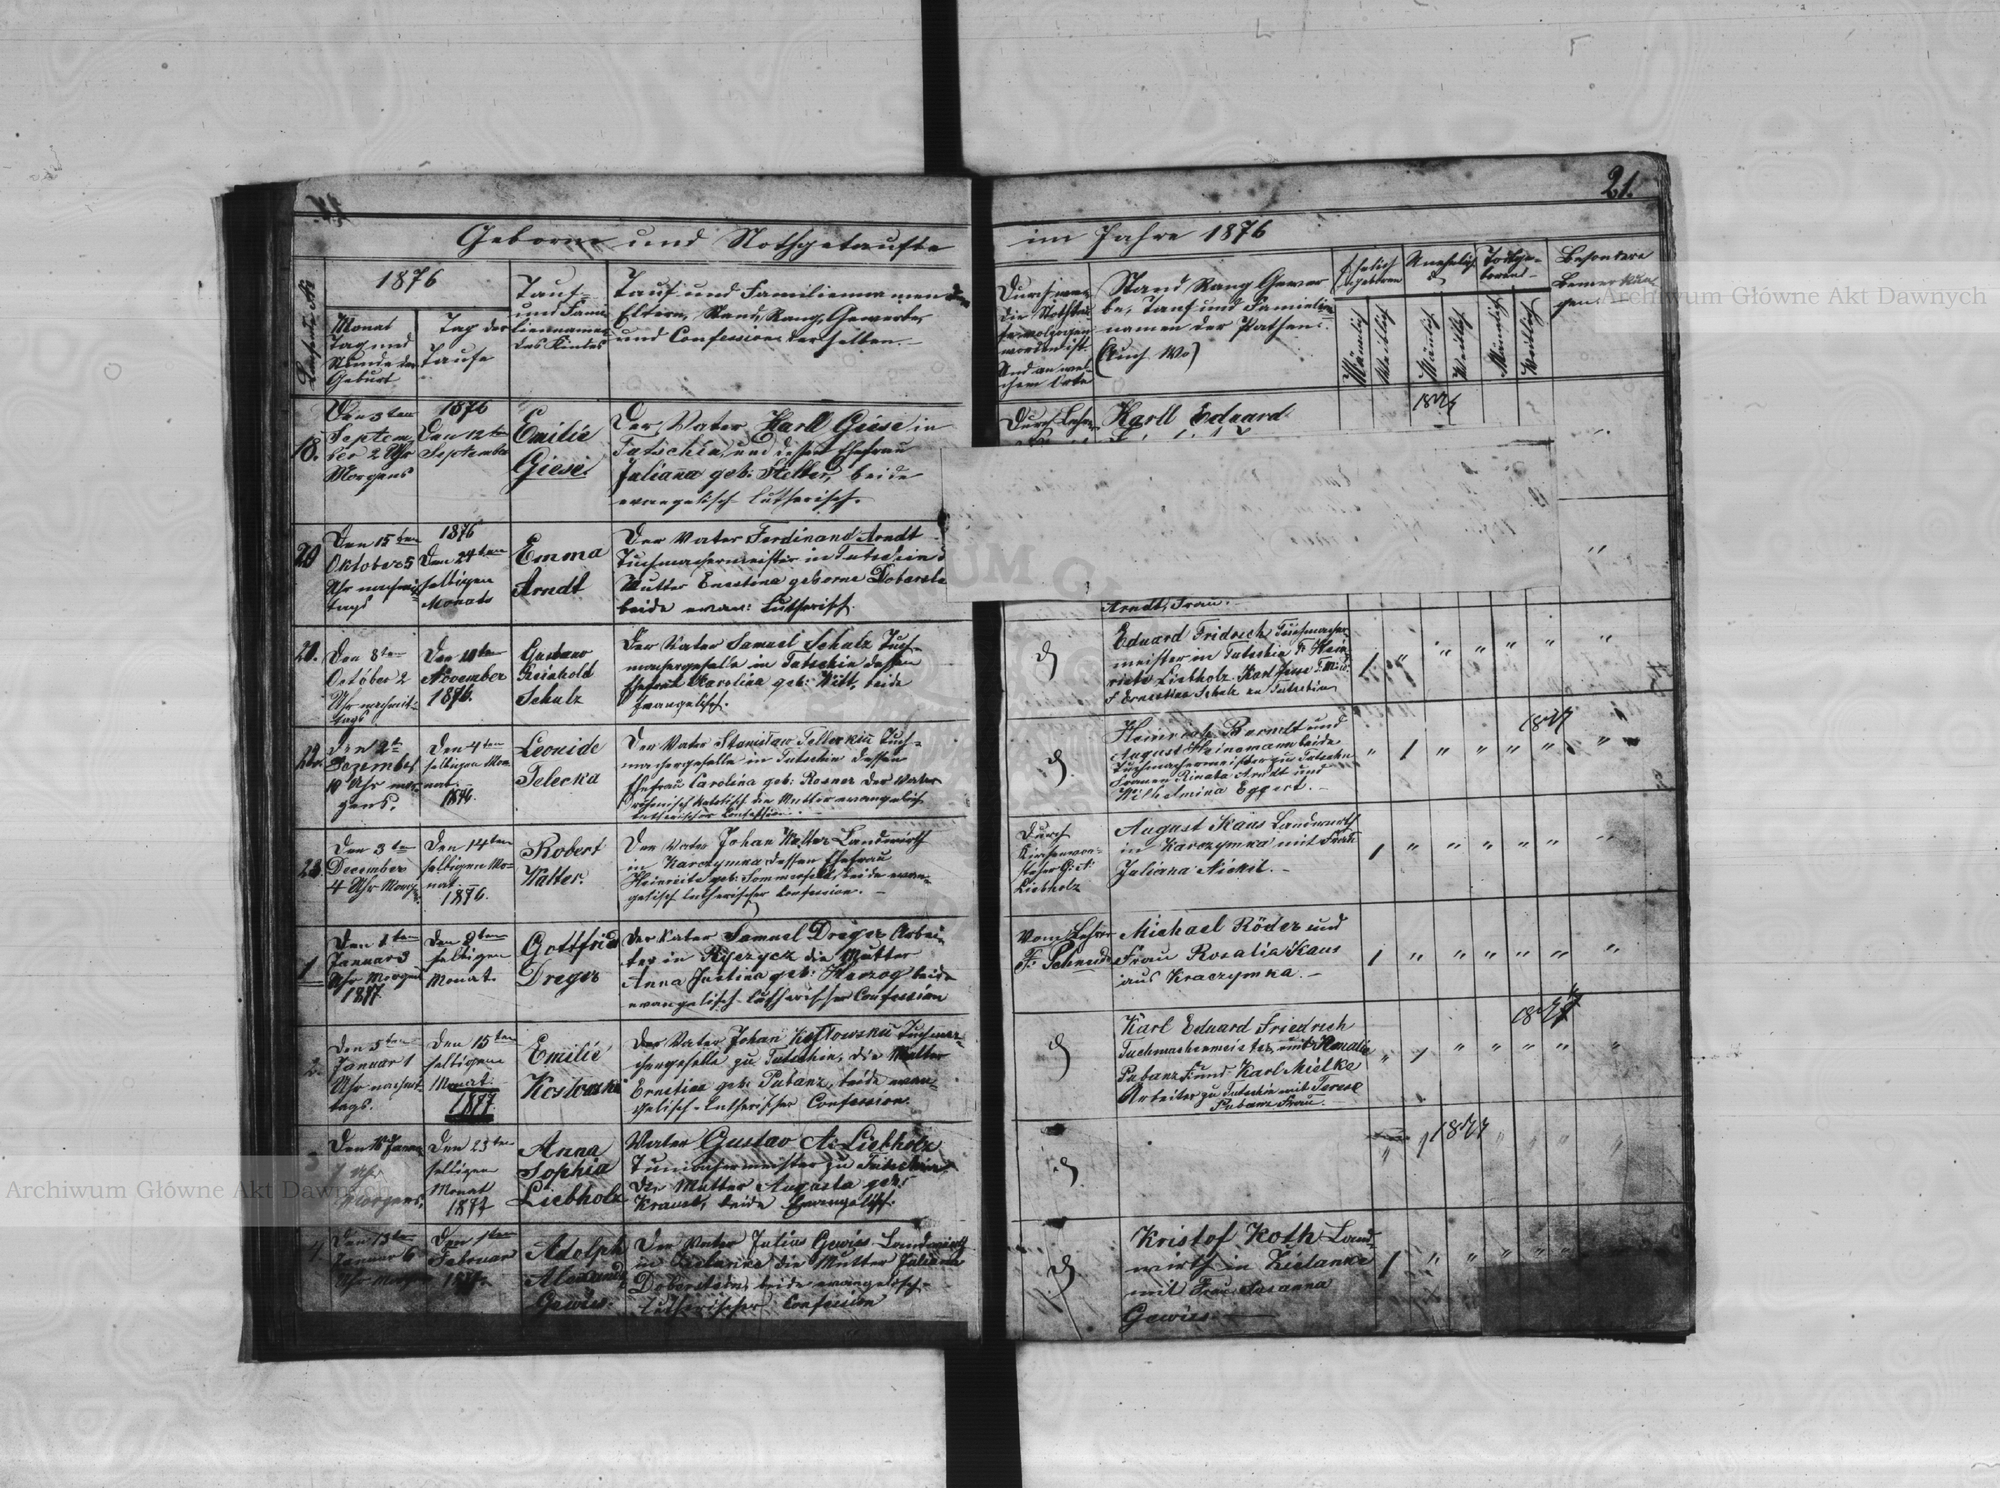 21.
Geborne und Nothgetaufte
im Jahre 1876
1876
Monat
Tag und
Stunde der
Geburt
Tag der
Taufe
Tauf-
und Fami-
liennamen
des Kindes
Tauf und Familiennamen der
Eltern, Stand, Rang, Gewerbe,
und Confession derselben.
Durch wen
die Nothtau-
fe volzogen
worden ist.
Und an wel-
chem Orte
Stand, Rang Gewer
be, Tauf und Familien
namen der Pathen.
(Auch Wo)
Ehelich
geboren
Unehelich
Todtge-
borene
Besondere
Bemerkun
gen.
Männlich
Weiblich
Männlich
Weiblich
Männlich
Weiblich
Den 3ten
Septem
ber 2 Uhr
Morgens
1876
Den 12ten
September
Emilie
Giese
Der Vater Karll Giese in
Tutschin, und dessen Ehefrau
Juliana geb: beide
evangelisch lutherisch.
Durch Lehr
Karll Eduard
1876
20
Den 15ten
Oktober 5
Uhr nachmit
tags
1876
Den 24ten
selbigen
Monats
Emma
Arndt
Der Vater Ferdinand Arndt
Tuchmachermeister in Tutschin
Mutter Ernestina geborne
beide evan: Lutherisch.
Arndt, Frau.
21.
Den 8ten
October 2
Uhr nachmit-
tags
Den 10ten
November
1876.
Gustav
Reinhold
Schulz
Der Vater Samuel Schulz Tuch-
machergeselle in Tutschin dessen
Ehefrau Karolina geb: Witt, beide
Evangelisch.
Eduard Fridrich Tuchmacher-
meister in Tutschin F. Hein-
riete Liebholz Karl
F Ernestina Schulz zu Tutschin
Den 2te
Dezember
10 Uhr mor
gens.
Den 4ten
selbigen Mo
nat.
1876.
Leonide
Telecka
Der Vater Stanislaw Tuch-
machergeselle in Tutschin dessen
Ehefrau Carolina geb: Rosner der Vater
römisch katolisch die Mutter evangelisch
lutherischer Confession.
Heinrich Berndt und
August Heinemann beide
Tuchmachermeister zu Tutschin
Frauen Rinata Arndt und
Wilhelmina Eggert.
1877
23
Den 3te
December
4 Uhr Morg.
Den 14ten
selbigen Mo-
nat.
1876.
Robert
Walter.
Der Vater Johan Walter Landwirth
in Karczymka dessen Ehefrau
Heinriete geb: Sommerfeld, beide evan-
gelisch lutherischer Confession.
Durch
Kirchenvor-
steher
Liebholz
August Käus Landwirth
in Karczymka mit Frau
Juliana Nickel.
1
Den 1ten
Januar 3
Uhr Morgens
1877
Den 8ten
selbigen
Monat.
Gottfried
Dreger
Der Vater Samuel Dreger Arbei-
ter in Ryczycz die Mutter
Anna Justina geb: Herzog beide
evangelisch-lutherischer Confession
Vom Lehrer
F. Schneider
Michael Röder und
Frau Rosalia Kaus
aus Kraczymka.
2.
Den 5ten
Januar 1
Uhr nachmit
tags.
Den 15ten
selbigen
Monat.
1877.
Emilie
Koslowski
Der Vater Johan Koslowski Tuchma-
chergeselle zu Tutschin, die Mutter
Ernestine geb: Pubanz, beide evan-
gelisch-lutherischer Confession.
Karl Eduard Friedrich
Tuchmachermeister, mit Amalie
Pubanz F. und Karl Mielke
Arbeiter zu Tutschin mit Terese
Pubanz Frau.
1877
Morgens.
Den 23ten
selbigen
Monat
1877
Anna
Sophia
Liebholz
Vater Gustav A: Liebholz
Tuchmachermeister zu Tutschin
die Mutter Augusta geb:
Krause, beide Evangelisch.
1877
4
Den 13ten
Januar 6
Uhr morgens
Den 1ten
Februar
1877.
Adolph
Alexander
Gewiss.
Der Vater Julius Gewiss Landwirth
in Zielanka die Mutter Juliana
Doberstein, beide evangelisch-
lutherischer Confession
Kristof Koth Land-
wirth in Zielanka
mit Frau Susanna
Gewiss.
Archiwum Główne Akt Dawnych
Archiwum Główne Akt Dawnych